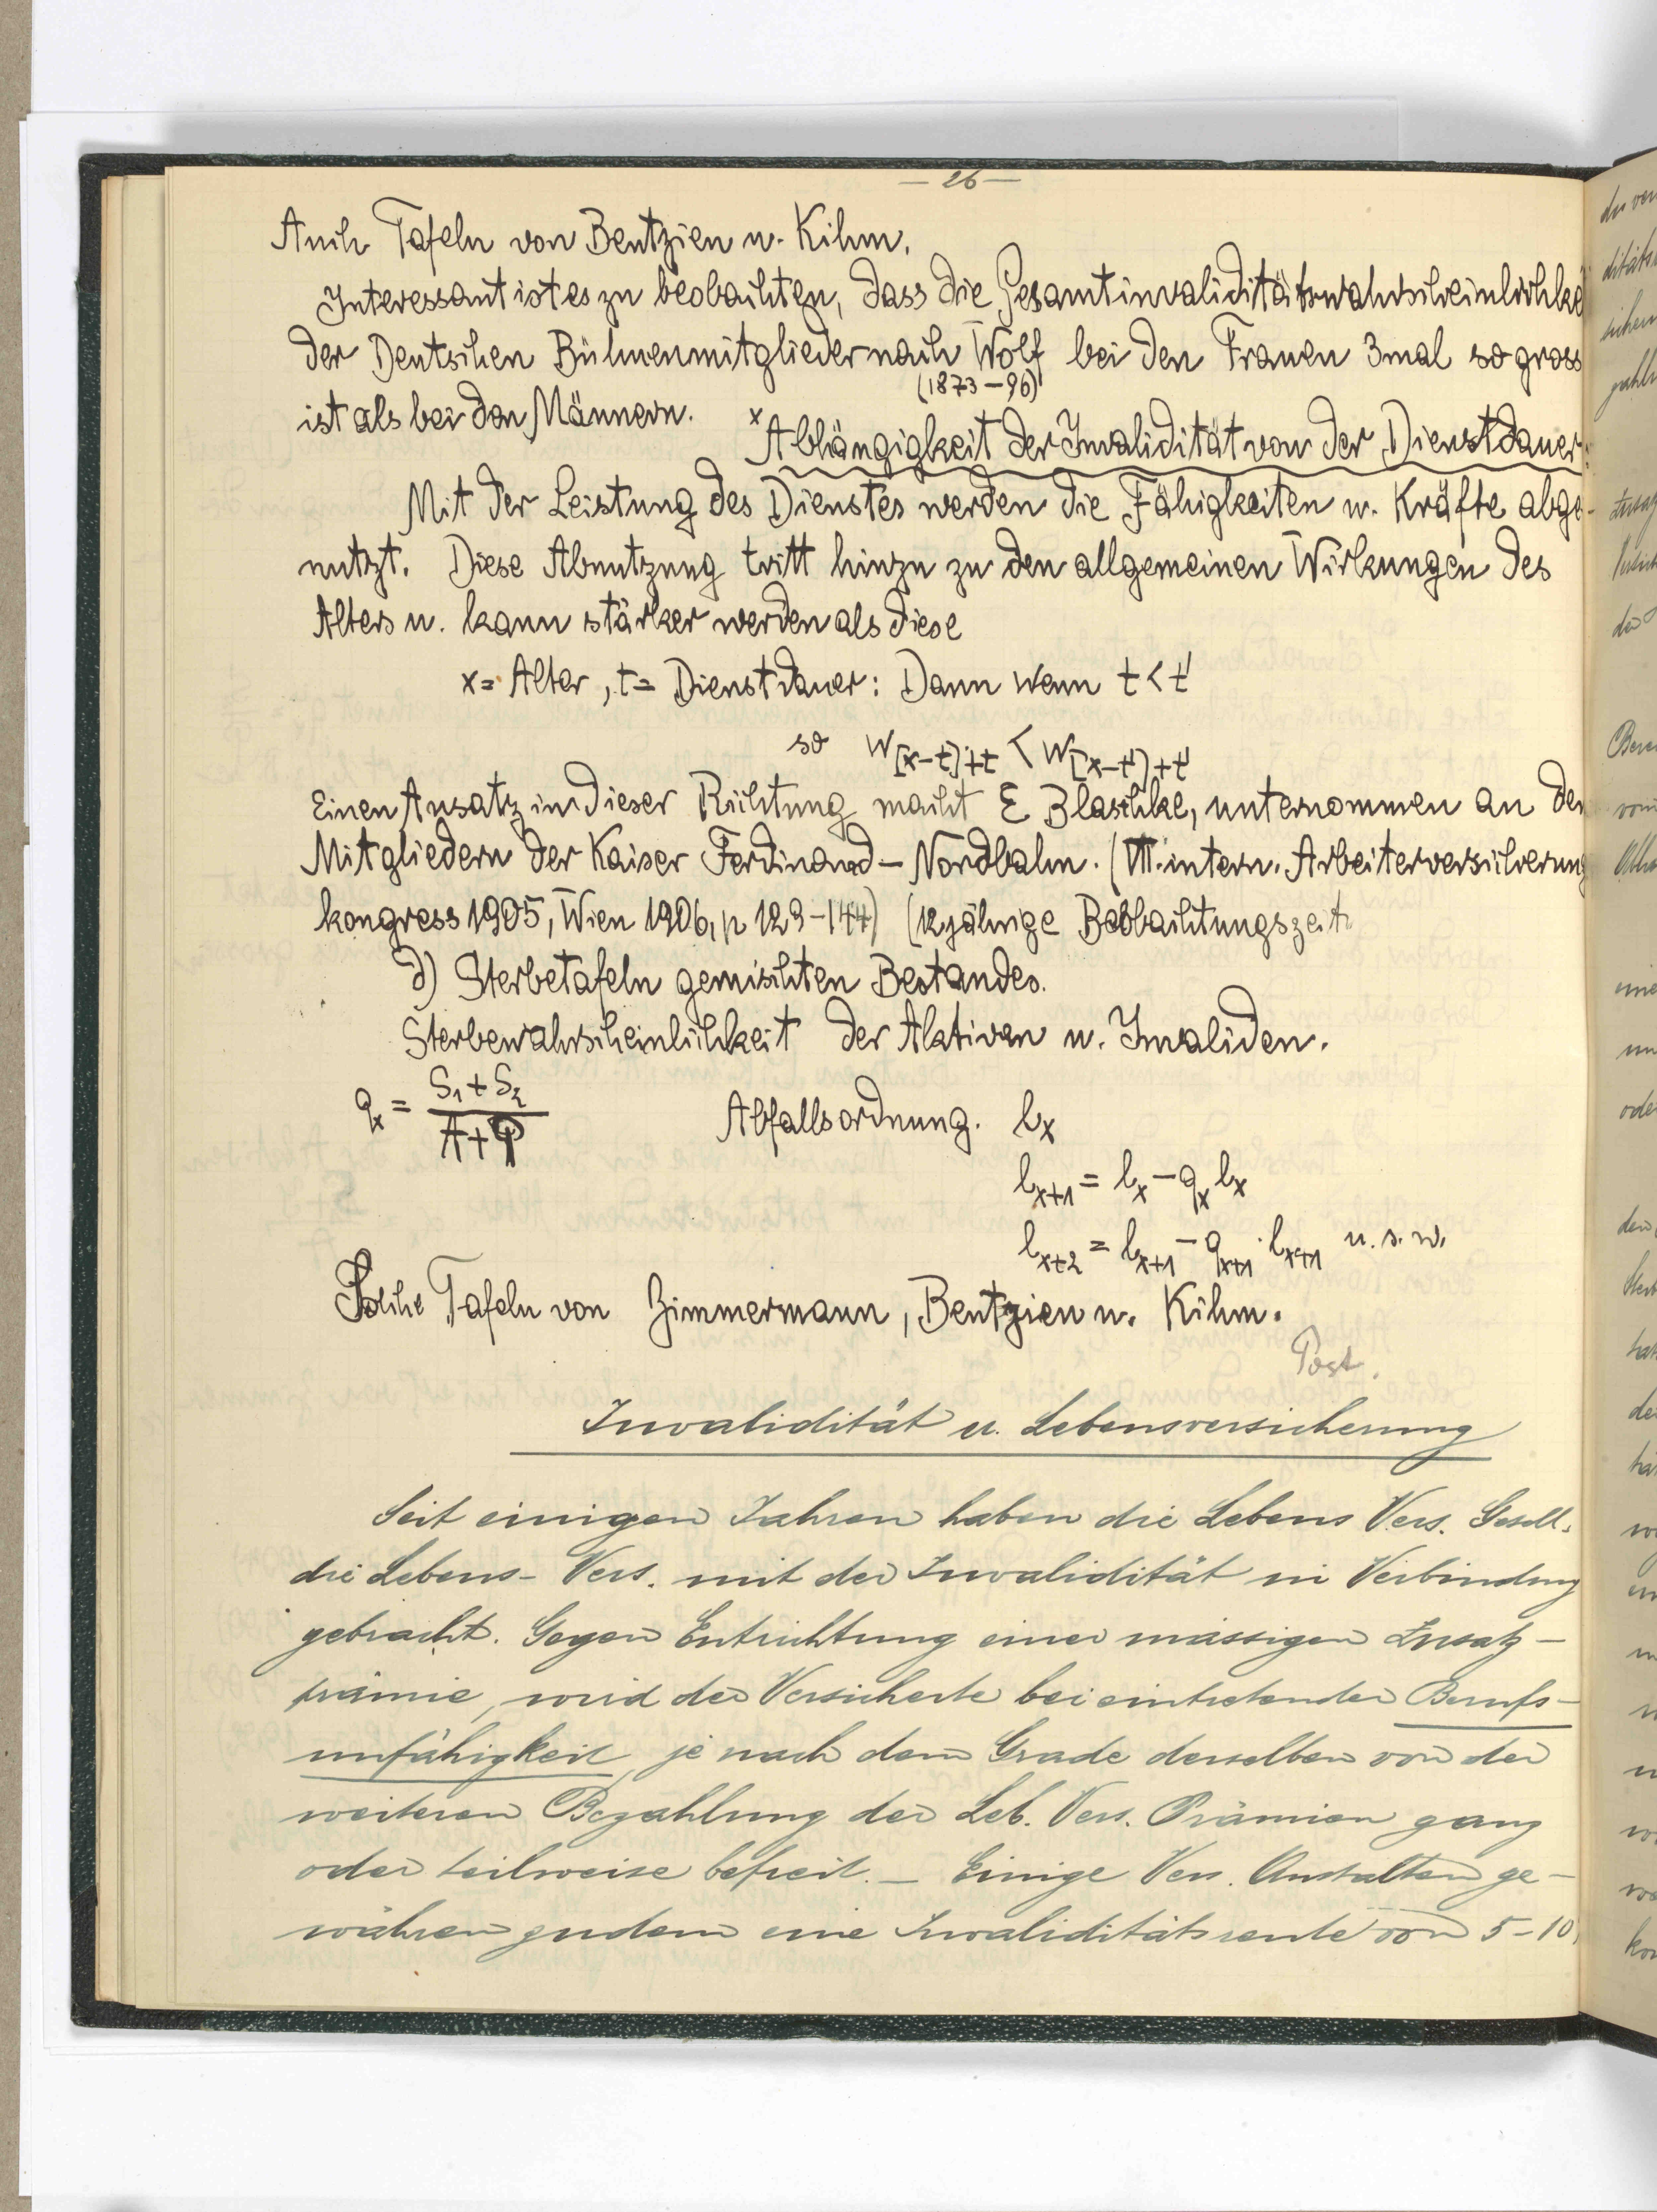 — 26 —
Auch Tafeln von Bentzien u. Kihm.
Interessant ist es zu beobachten, dass die Gesamtinvaliditätswahrscheinlichke
der Deutschen Bühnenmitglieder nach Wolf bei den Frauen 3mal so gross
(1873–96)
ist als bei den Männern.
x Abhängigkeit der Invalidität von der Dienstdauer:
Mit der Leistung des Dienstes werden die Fähigkeiten u. Kräfte abge-
nutzt. Diese Abnutzung tritt hinzu zu den allgemeinen Wirkungen des
Alters u. kann stärker werden als diese
x = Alter, t = Dienstdauer: Dann wenn t < t'
so w[x-t]+t < w[x-t']+t'
Einen Ansatz in dieser Richtung macht E Blaschke, unternommen an den
Mitgliedern der Kaiser Ferdinand – Nordbahn. (VII. intern. Arbeiterversicherung
kongress 1905, Wien 1906, p 129–144) (12jährige Beobachtungszeit
d) Sterbetafeln gemischten Bestandes.
Sterbewahrscheinlichkeit der Aktiven u. Invaliden.
qx = S1 + S2 / A + P
Abfallsordnung. lx
lx+1 = lx – qx lx
lx+2 = lx+1 – qx+1 · lx+1 u. s. w.
Solche Tafeln von Zimmermann, Bentzien u. Kihm.
Post.
Invalidität u. Lebensversicherung
Seit einigen Jahren haben die Lebens Vers. Gesell.
die Lebens- Vers. mit der Invalidität in Verbindung
gebracht. Gegen Entrichtung einer mässigen Zusatz-
prämie, wird der Versicherte bei eintretender Berufs-
unfähigkeit, je nach dem Grade derselben von der
weiteren Bezahlung der Leb. Vers. Prämien ganz
oder teilweise befreit. — Einige Vers. Anstalten ge-
währen zudem eine Invaliditätsrente von 5–10